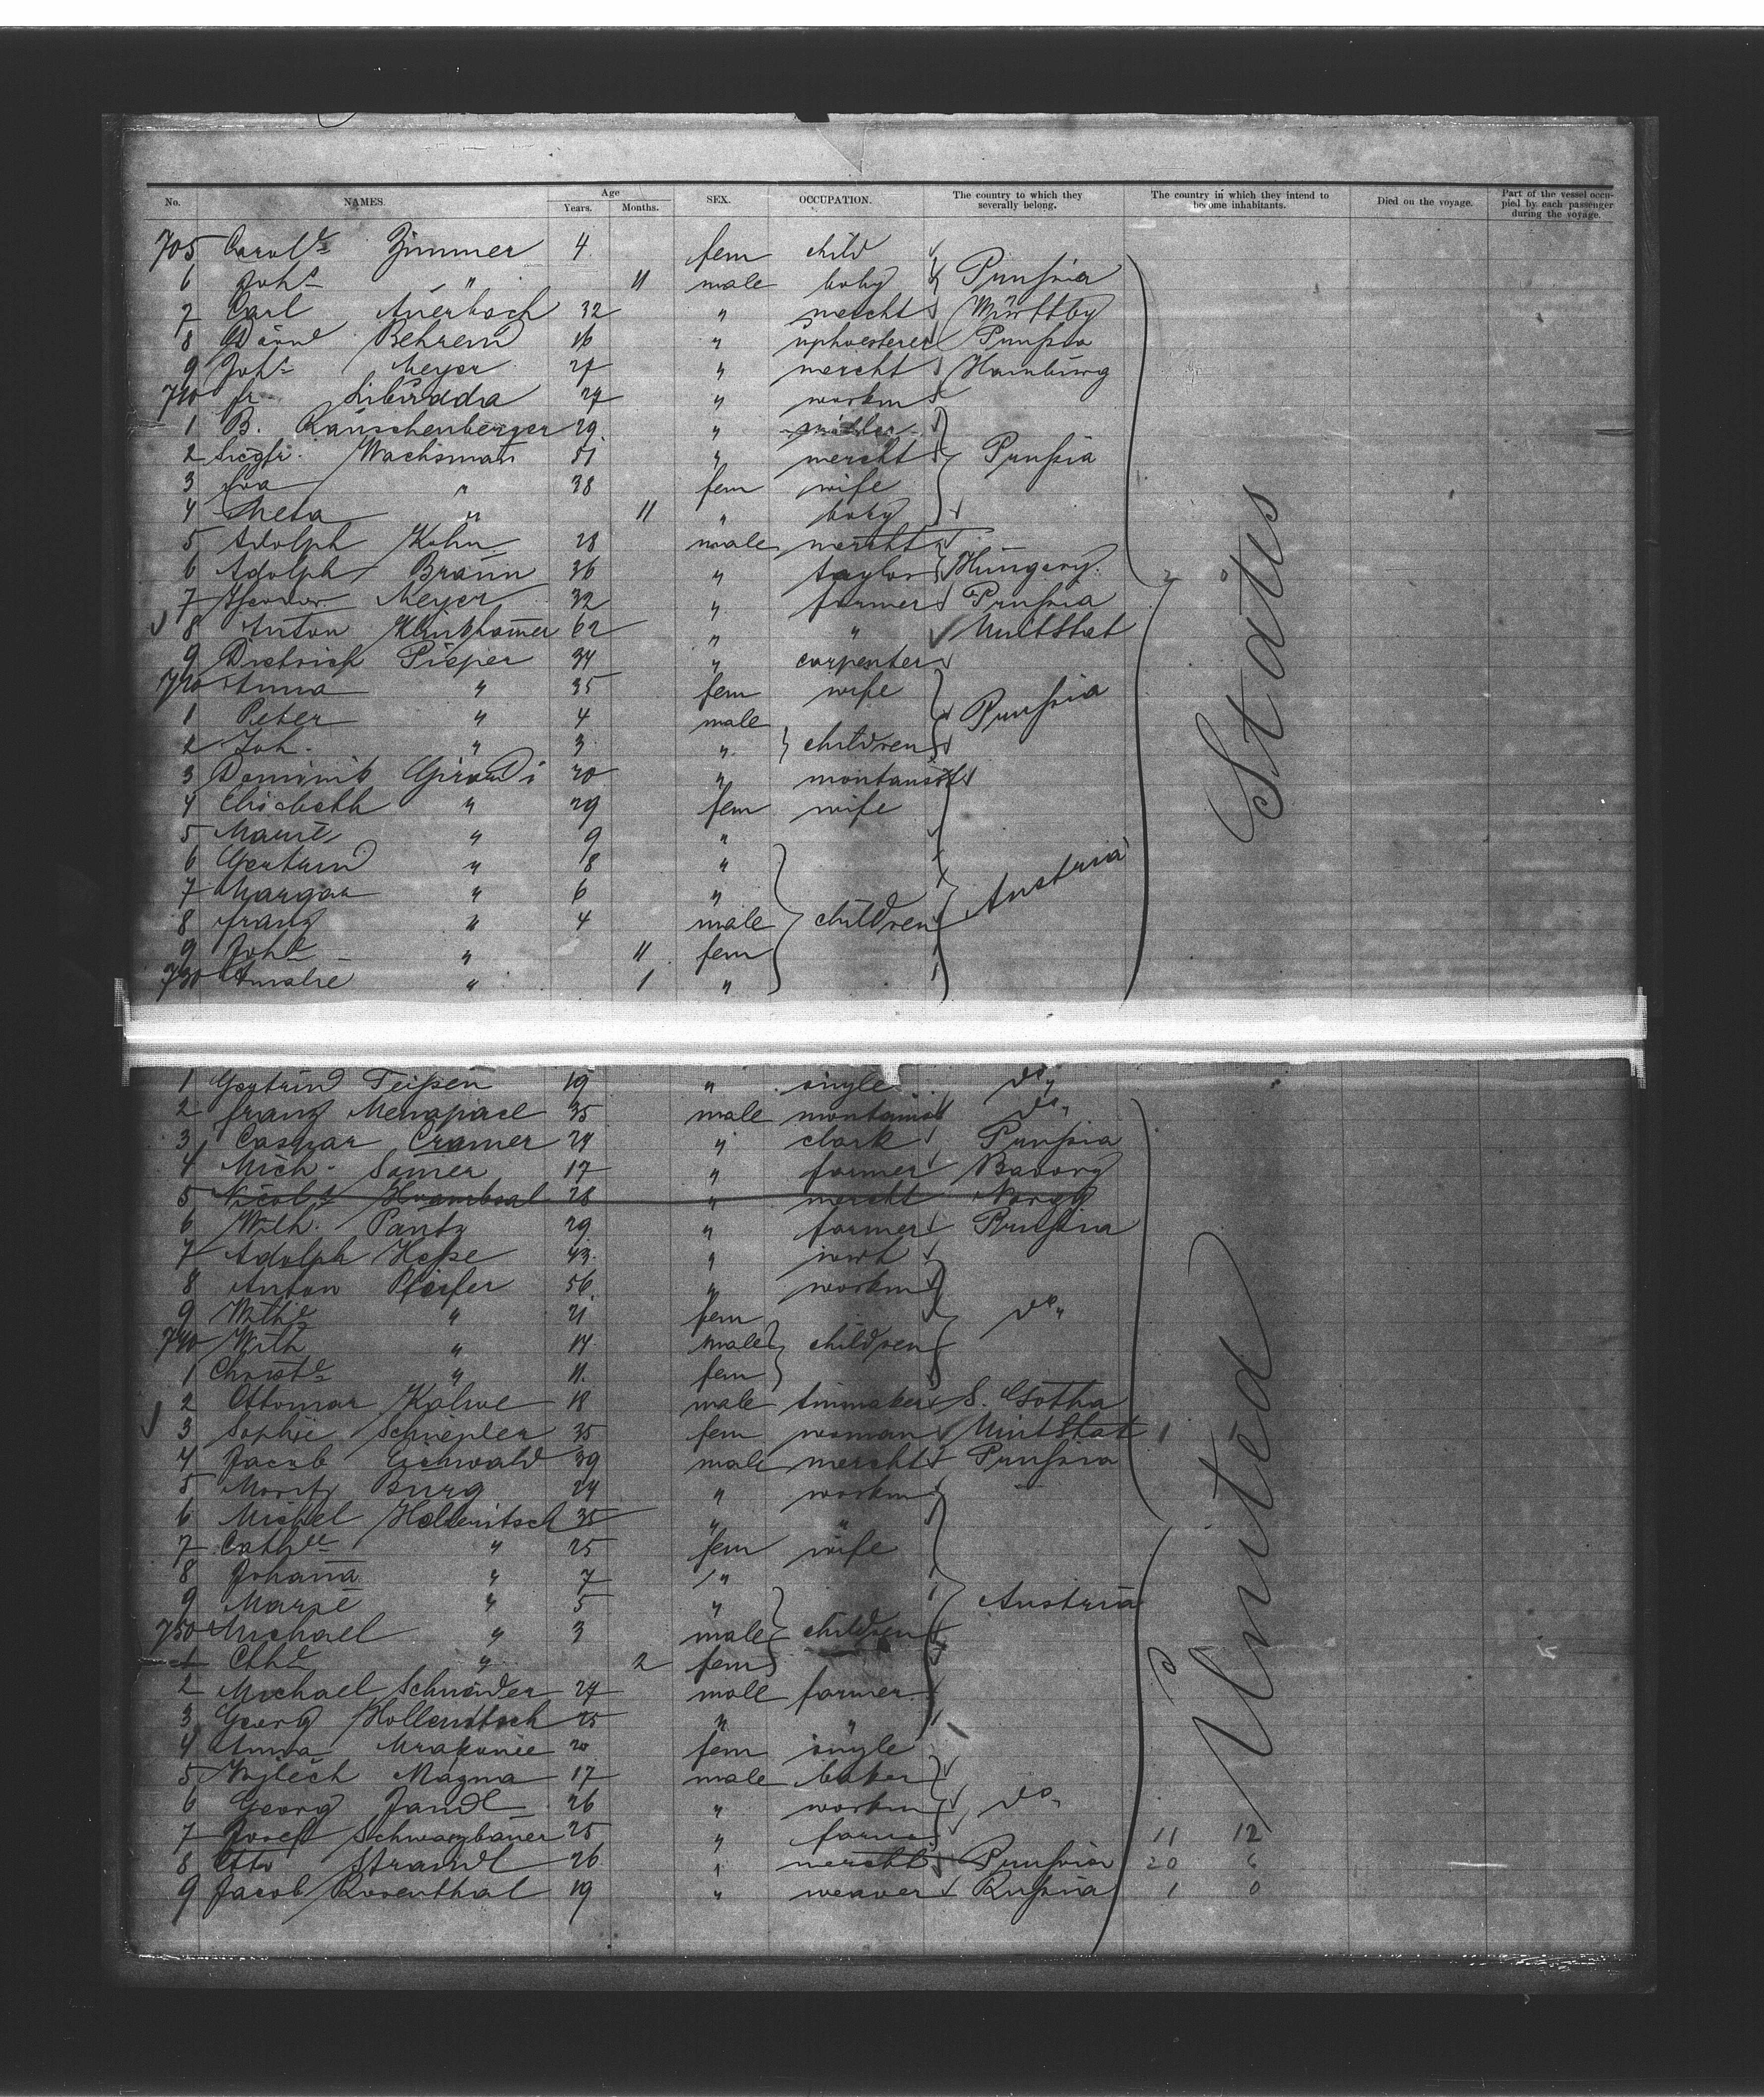 No. NAMES. Age Years. Months. SEX. OCCUPATION. The country to which they severally belong. The country in which they intend to become inhabitants. Died on the voyage. Part of the vessel occupied by each passenger during the voyage.
705 Zimmer 4 fem child
6 Joh.s " 11 male baby Prussia
7 Carl Auerbach 32 " mercht Württbg
8 Behrend 16 " upholsterer Prussia
9 Joh.s Meyer 27 " mercht Hamburg
710 Fr. 27 " workm
1 B. Rauschenberger 29 "
2 Siegfr. Wachsman 51 " mercht Prussia
3 Eva " 38 fem wife
4 Meta " 11 " baby
5 Adolph Kohn 28 male mercht
6 Adolph Braun 36 " taylor Hungary
7 Meyer 32 " farmer Prussia
8 Anton 62 " " UnitStat
9 Dietrich Pieper 34 " carpenter
720 Anna " 35 fem wife
1 Peter " 4 male
2 Joh. " 3 " children Prussia
3 Dominik Girardi 30 "
4 Elisabeth " 29 fem wife
5 Marie " 9 "
6 Gertrud " 8 "
7 " 6 " Austria
8 Franz " 4 male children
9 Joh.e " 11 fem
730 Amalie " 1 "
1 Gertrud Teissen 19 " single do
2 Franz Menapace 35 male do
3 Caspar Cramer 24 " clark Prussia
4 Mich. 17 " farmer Bavary
5 28 " mercht
6 Wilh. Pantz 29 " farmer Prussia
7 Adolph Hesse 43 "
8 Anton Pfeifer 56 " workm
9 Wilh.e " 21 fem do
740 Wilh " 14 male children
1 Christ.e " 11 fem
2 Ottomar 18 male S. Gotha
3 Sophie 35 fem woman UnitStat 1
4 Jacob 39 male mercht Prussia
5 Moritz Burg 24 " workm
6 Michel 35 " "
7 Cath.e " 25 fem wife
8 Johanna " 7 "
9 Marie " 5 " Austria
750 Michael " 3 male children
1 " 2 fem
2 Michael Schneider 24 male farmer
3 Georg 25 " "
4 Anna 20 fem single
5 17 male baker
6 Georg Jandl 26 " workm do
7 Josef Schwarzbauer 25 " 11 12
8 Otto 26 " mercht Prussia 20 6
9 Jacob Rosenthal 19 " weaver Russia 1 0
United States